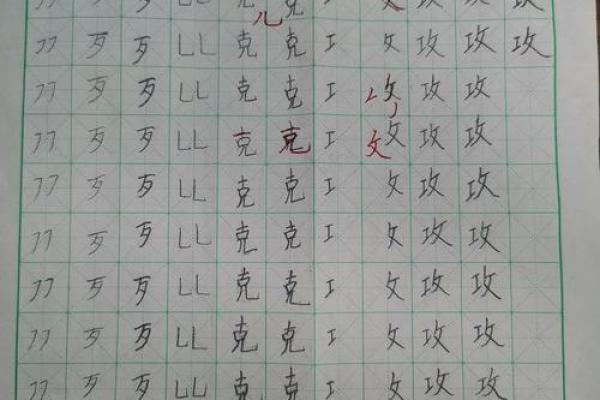 歹 歹 克 克 攵 攻 攻 攻
儿
歹 歹 克 克 工 攵 攻 攻 攻
歹 歹 克 克 工 攵 攻 攻
歹 歹 克 克 工 攵 攵 攻 攻
歹 歹 克 克 工 攵 攻 攻
歹 歹 克 克 工 攵 攻 攻
歹 歹 克 克 工 攵 攻 攻
歹 歹 克 克 工 攵 攻 攻
歹 歹 克 克 工 攵 攻 攻